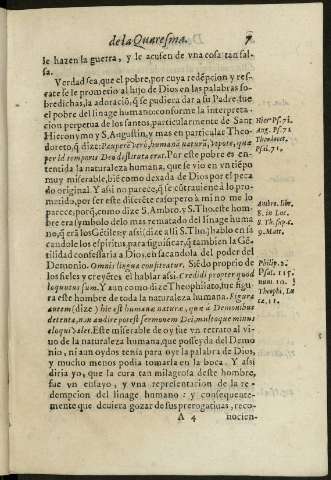 de la Quaresma. 7
le hazen la guerra, y le acusen de vna cosa tan fal-
sa.
Verdad sea, que el pobre, por cuya redẽpcion y res-
cate se le prometio al hijo de Dios en las palabras so-
bredichas, la adoraciõ, q̃ se pudiera dar a su Padre, fue
el pobre del linage humano: conforme la interpreta-
cion perpetua de los santos, particularmente de Sant
Hieronymo y S. Augustin, y mas en particular Theo-
doreto, q̃ dize: Pauperẽ verò, humanã naturã, vt pote, quæ
per id temporis Deo destituta erat. Por este pobre es en-
tentida la naturaleza humana, que se vio en vn tiẽpo
muy miserable, biẽ como dexada de Dios por el peca-
do original. Y assi no parece, q̃ se cõtrauiene à lo pro-
metido, por ser este discrete caso: pero à mi no me lo
parece; porq̃, como dize S. Ambro. y S. Tho. este hom-
bre era symbolo del mas rematado del linage huma-
no, q̃ erã los Gẽtiles: y assi (dize alli S. Tho.) hablo en sa
candole los espiritus, para significar, q̃ tambien la Gẽ-
tilidad confessaria a Dios, en sacandola del poder del
Demonio. Omnis lingua confiteatur. Siẽdo proprio de
los fieles y creyẽtes el hablar assi. Credidi propter quod
loquutus sum. Y aun como dize Theophilato, fue figu
ra este hombre de toda la naturaleza humana. Figura
autem (dize) hic est humanæ naturæ, quæ à Demonibus
detenta, non audire potest sermonem Dei, multoque minus
eloqui valet. Este miserable de oy fue vn retrato al vi-
uo de la naturaleza humana, que posseyda del Demo
nio, ni aun oydos tenia para oyr la palabra de Dios,
y mucho menos podia tomarla en la boca. Y assi
diria yo, que la cura tan milagrosa deste hombre,
fue vn ensayo, y vna representacion de la re-
dempcion del linage humano: y consequente-
mente que deuiera gozar de sus prerogatiuas, reco-
A 4 nocien-
Hier Ps. 71.
Aug. Ps. 71
Theodoret.
Psal. 71.
Ambr. lib.
8. in Luc.
S. Th. sup c.
9. Matt.
Philip. 2.
Psal. 115.
num. 10.
Theophi. Lu
cæ. 11.